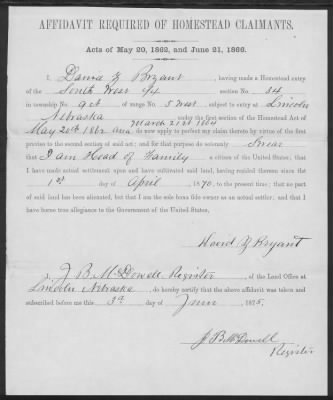 AFFIDAVIT REQUIRED OF HOMESTEAD CLAIMANTS.
Acts of May 20, 1862, and June 21, 1866.
I, David Y Bryant, having made a Homestead entry
of the South West 1/4 section No. 34
in township No. 9 of range No. 5 West, subject to entry at Lincoln
Nebraska under the first section of the Homestead Act of
March 21st 1864
May 20th 1862 and, do now apply to perfect my claim thereto by virtue of the first
proviso to the second section of said act; and for that purpose do solemnly Swear
that I am Head of Family a citizen of the United States; that I
have made actual settlement upon and have cultivated said land, having resided thereon since the
1st day of April 1870, to the present time; that no part
of said land has been alienated, but that I am the sole bona fide owner as an actual settler; and that I
have borne true allegiance to the Government of the United States.
David Y Bryant
I, J B McDowell Register, of the Land Office at
Lincoln Nebraska, do hereby certify that the above affidavit was taken and
subscribed before me this 3d day of June 1875.
J B McDowell
Register